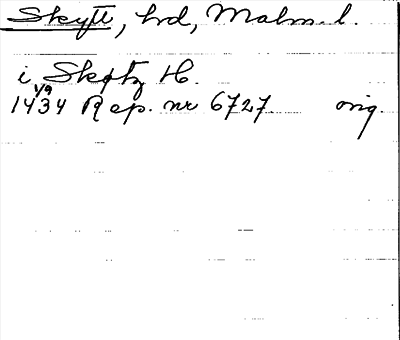 Skytt, hd, Malm. l.
i Skytz H.
1/9
1434 Rep. nr 6727 orig.